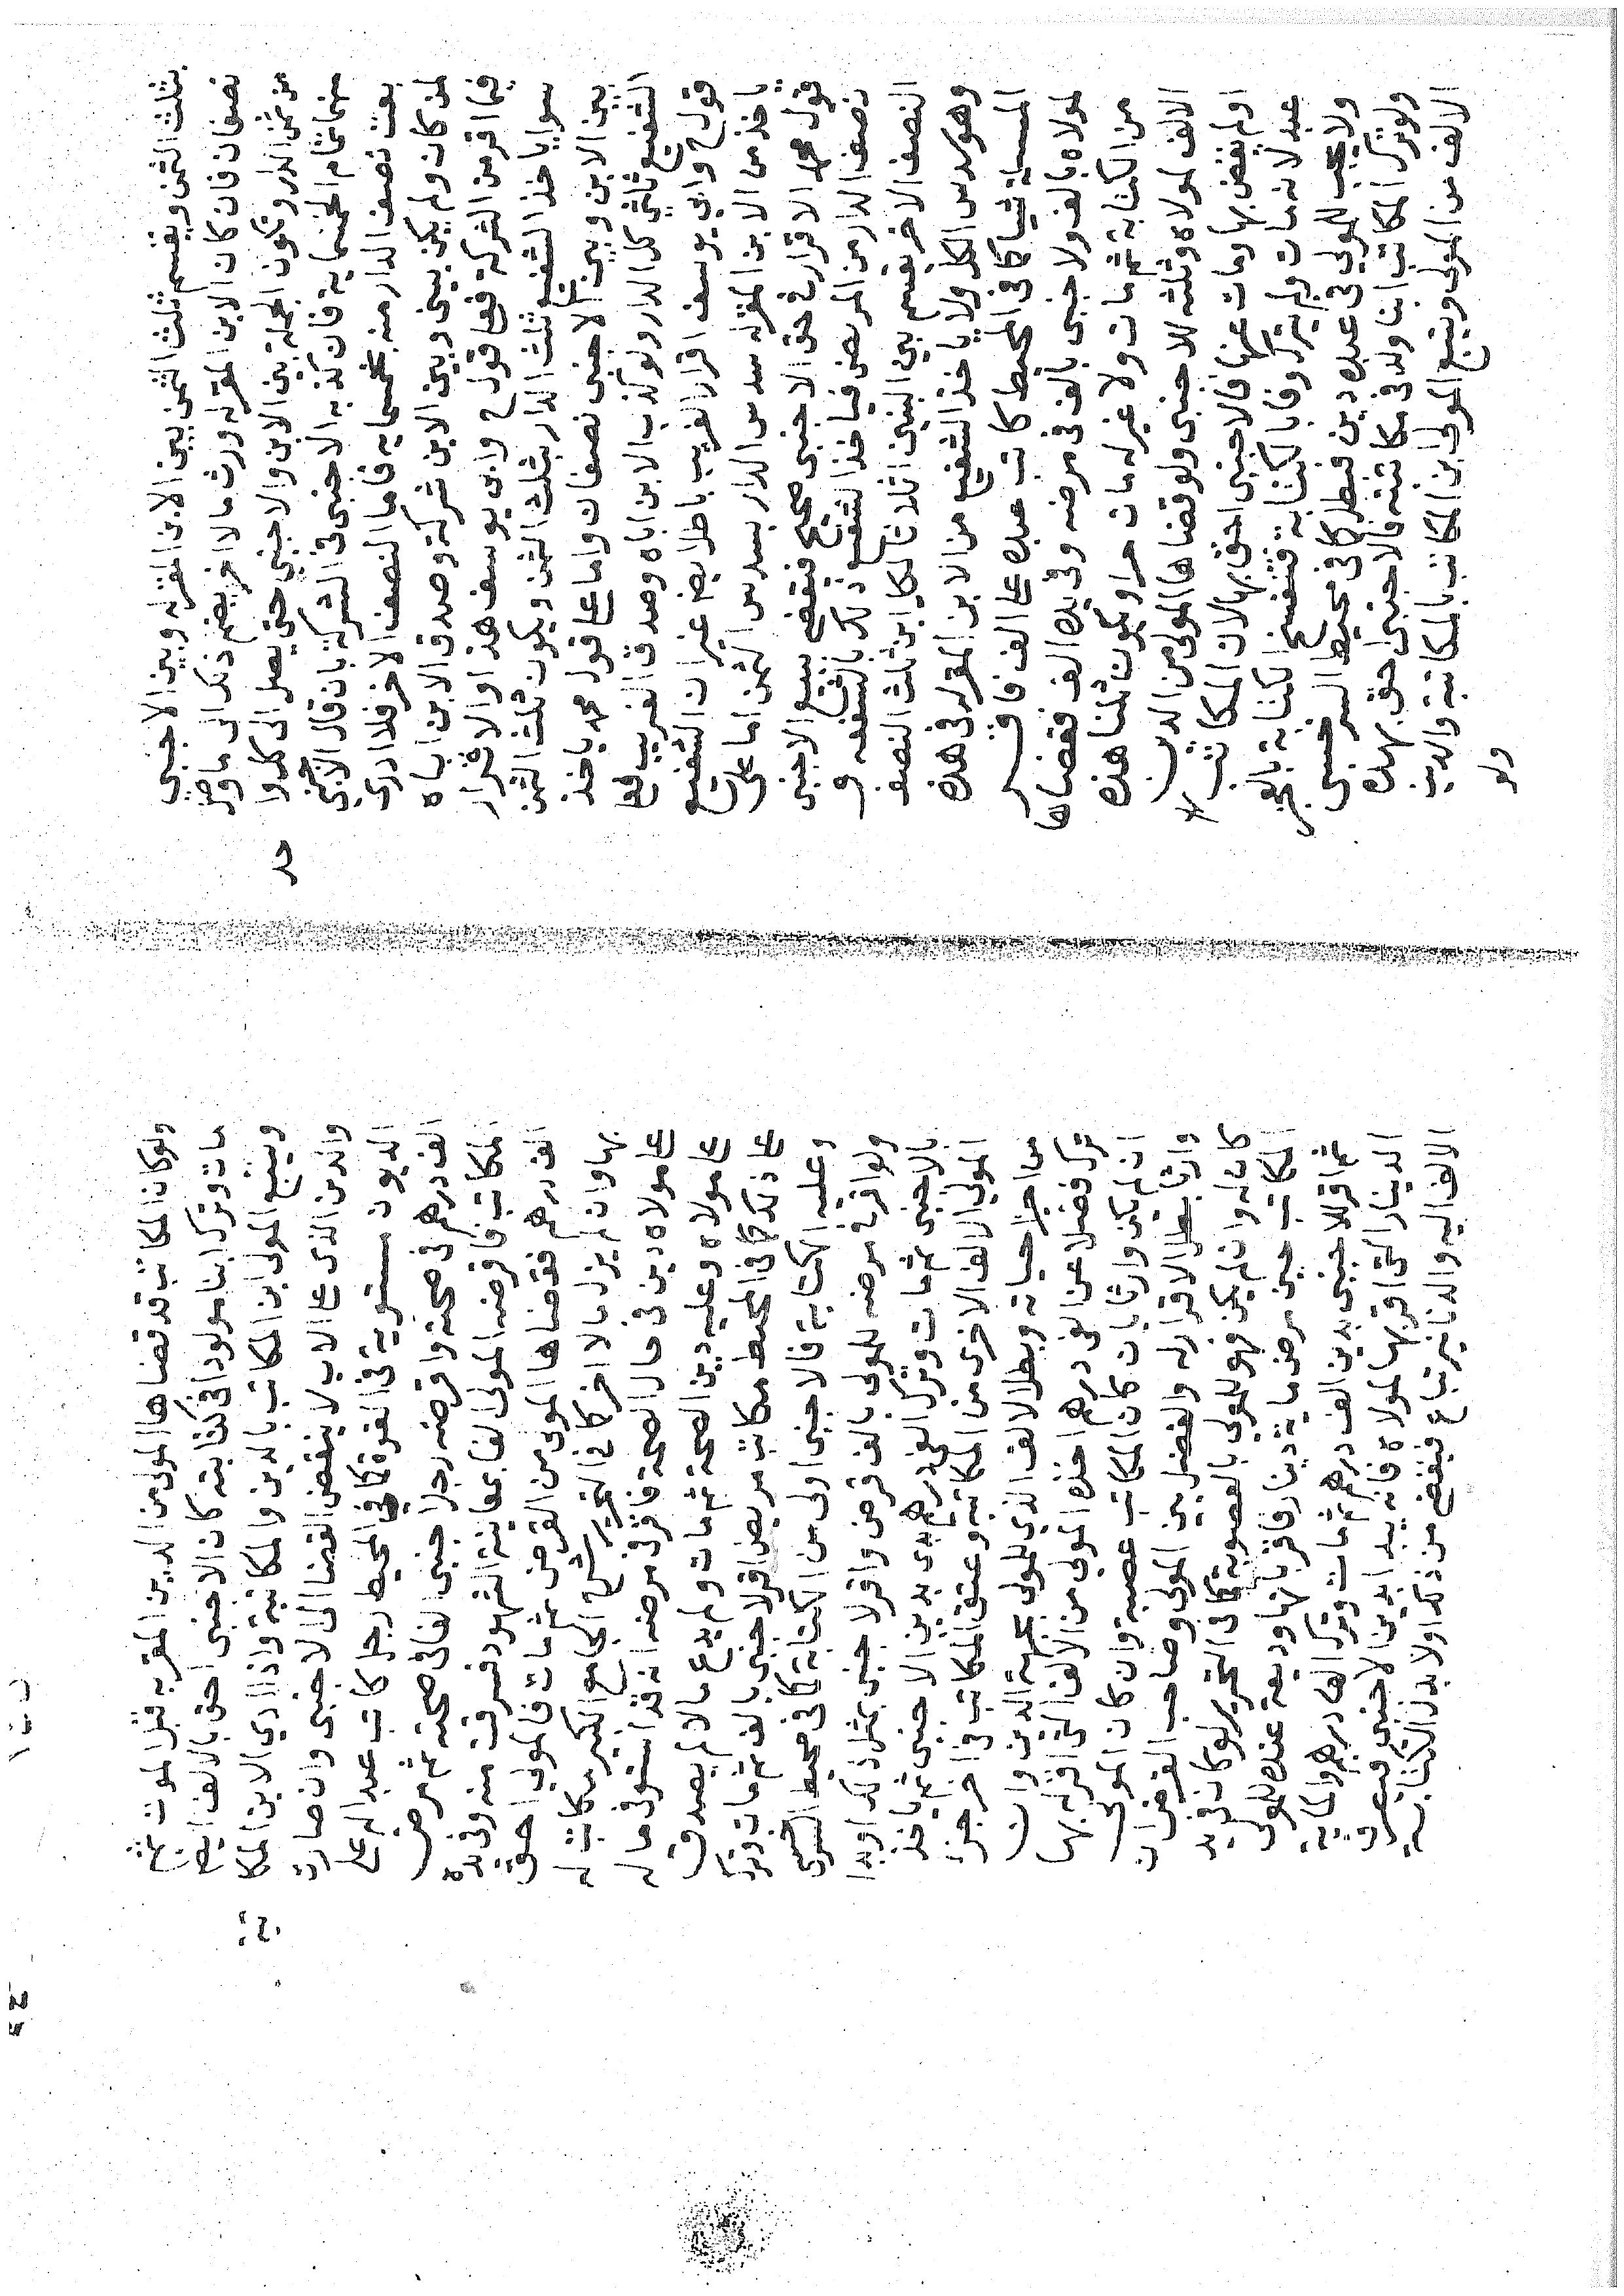 بثلث الثمن ويقسم ثلث الثمن بين الابن المقر له وبين الاجنبى
نصفان فان كان الابن المقر له ورث مالا اخر يضم ذلك الى ما ورث
من ثمن الدار وتكون الجملة بين الابن والاجنبي حتى يصل الى كل وا
حد
منهما تمام الخمسماية فان كذبه الاجنبى فى الشركة بان قال الاجنبى
بعت نصف الدار منه بخمسماية فاما النصف الاخر فلا ادرى
لمن كان ولم يكن بينى وبين الابن شركة وصدق الابن اباه
فيما اقر من الشركة فعلى قول ح وابى يوسف هذا والاقرار
سوا ياخذ الشفيع ثلث الدار بثلث الثمن ويكون ثلث الثمن
بين الابن وبين الاجنبى نصفان واما على قول محمد ياخذ
الشفيع ثلثى كل الدار ولو كذب الابن اباه وصدق الغريب فعلى
قول ح وابى يوسف اقرار الغريب باطل ايضا غير ان الشفيع
ياخذ من الابن المقر له سدس الدار بسدس الثمن اما على
قول محمد الاقرار فى حق الاجنبى صحيح فيقضى ببيع الاجنبى
نصف الدار من المريض فياخذ الشفيع ذلك بالشفعه و
النصف الاخر يقسم بين البنين اثلاثا لكل ابن ثلث النصف
وهو سدس الكل ولا ياخذ الشفيع من الابن المقر له فى هذه
المسالة شيا كما فى المحيط كاتب عبده على الف فاقر
لمولاه بالف ولاجنبى بالف فى مرضه وفى يده الف فقضاها
من الكتابة ثم مات ولا غير له مات حرا ويكون ثلثا هذه
الالف لمولاه وثلثه للاجنبى ولو قضاها المولى من الدين لا
او لم يقض بها ومات عنها فالاجنبى احق بها لان المكاتب
عبد لانه مات ولم يترك وفا بالكتابة فتنفسخ الكتابة بالعجز
ولا يجب للمولى فى عبده دين فبطل كما فى محيط السرخسى
ولو ترك المكاتب ابنا ولد فى مكاتبته فالاجنبى احق بهذه
الالف من المولى ويتبع المولى ابن المكاتب بالمكاتبة والدين
ولو
ولو كان المكاتب قد قضاها المولى من الدين المقر به قبل الموت ثم
مات وترك ابنا مولودا فى كتابته كان الاجنبى احق بالالف ايضا
ويتبع المولى ابن المكاتب بالدين والمكاتبة واذا ادى الابن المكا
تبة
والدين الذى على الاب لا ينقض القضا الى الاجنبى وان صارت
الديون مستوية فى القوة كما فى المحيط رجل كاتب عبدا له على
الف درهم فى صحته واقرضه رجل اجنبى الفا فى صحته ثم مرض
المكاتب فاقرضه المولى الفا بمعاينة الشهود فسرقت منه وفى يده
الف درهم فقضاها المولى من القرض ثم مات فالمولى احق
بها وان لم يترك مالا اخر كما فى التحرير شرح الجامع الكبير مكاتب له
على مولاه دين فى حال الصحة فاقر فى مرضه انه قد استوفى ماله
على مولاه وعليه دين الصحة ثم مات ولم يدع مالا لم يصدق
على ذلك كما فى المحيط مكاتب مريض اقر لاجنبى بالف ثم مات وترك
وعليه الكتابة فالاجنبى اولى من الكتابة كما فى محيط السرخسى
ولو اقر فى مرضه للمولى بالف قرض واقر لاجنبى بمثل ذلك او بدا
بالاجنبى ثم مات وترك الفى درهم بدى بدين الاجنبى ثم ياخذ
المولى الالف الاخرى من المكاتبة وعتق المكاتب فى اخر جزء
من اجزا حياته وبطل الالف الذي للمولى بجهة الدين وان
ترك فضلا عن الفى درهم اخذه المولى من الالف التى اقر له بها
ان لم يكن وارثا بان كان المكاتب عصبة وان كان المولى
وارثا بطل الاقرار له والفضل بين المولى وصاحب الفرض ان
كان له وان لم يكن فهو للمولى بالعصوبة كما فى التحرير لو كان فى يد
المكاتب حين مرض ماية دينار فاقر بانها وديعة عنده للمولى
ثم اقر للاجنبى بدين الف درهم ثم مات وترك الف درهم والماية
الدينار التى اقر بها لمولاه فانه يبدا بدين الاجنبى فيصرف
الالف اليه والدنانير تباع فيقضى من ذلك اولا بدل الكتابة